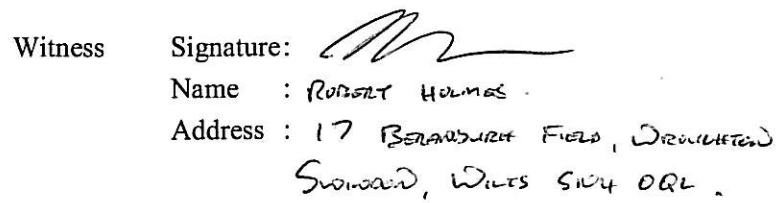 Witness Signature:
Name : ROBERT HOLMES.
Address : 17 BERANBURH FIELD, WROUGHTON
SWINDON, WILTS SN4 0QL.